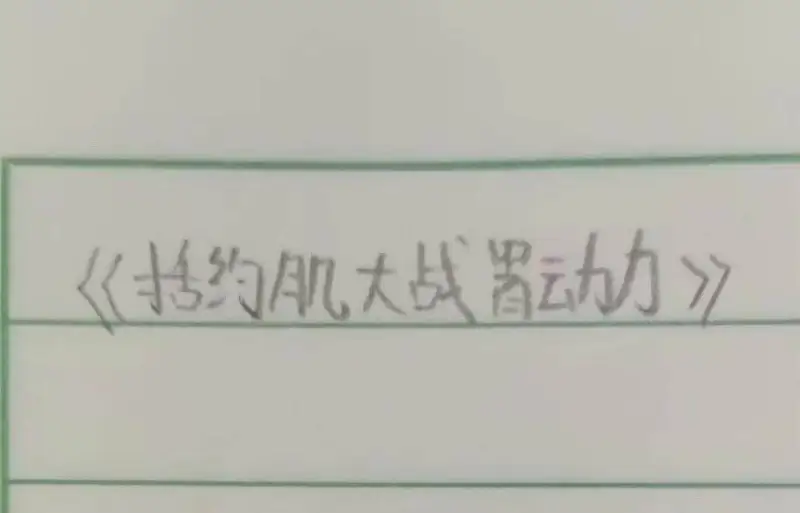 《括约肌大战胃动力》